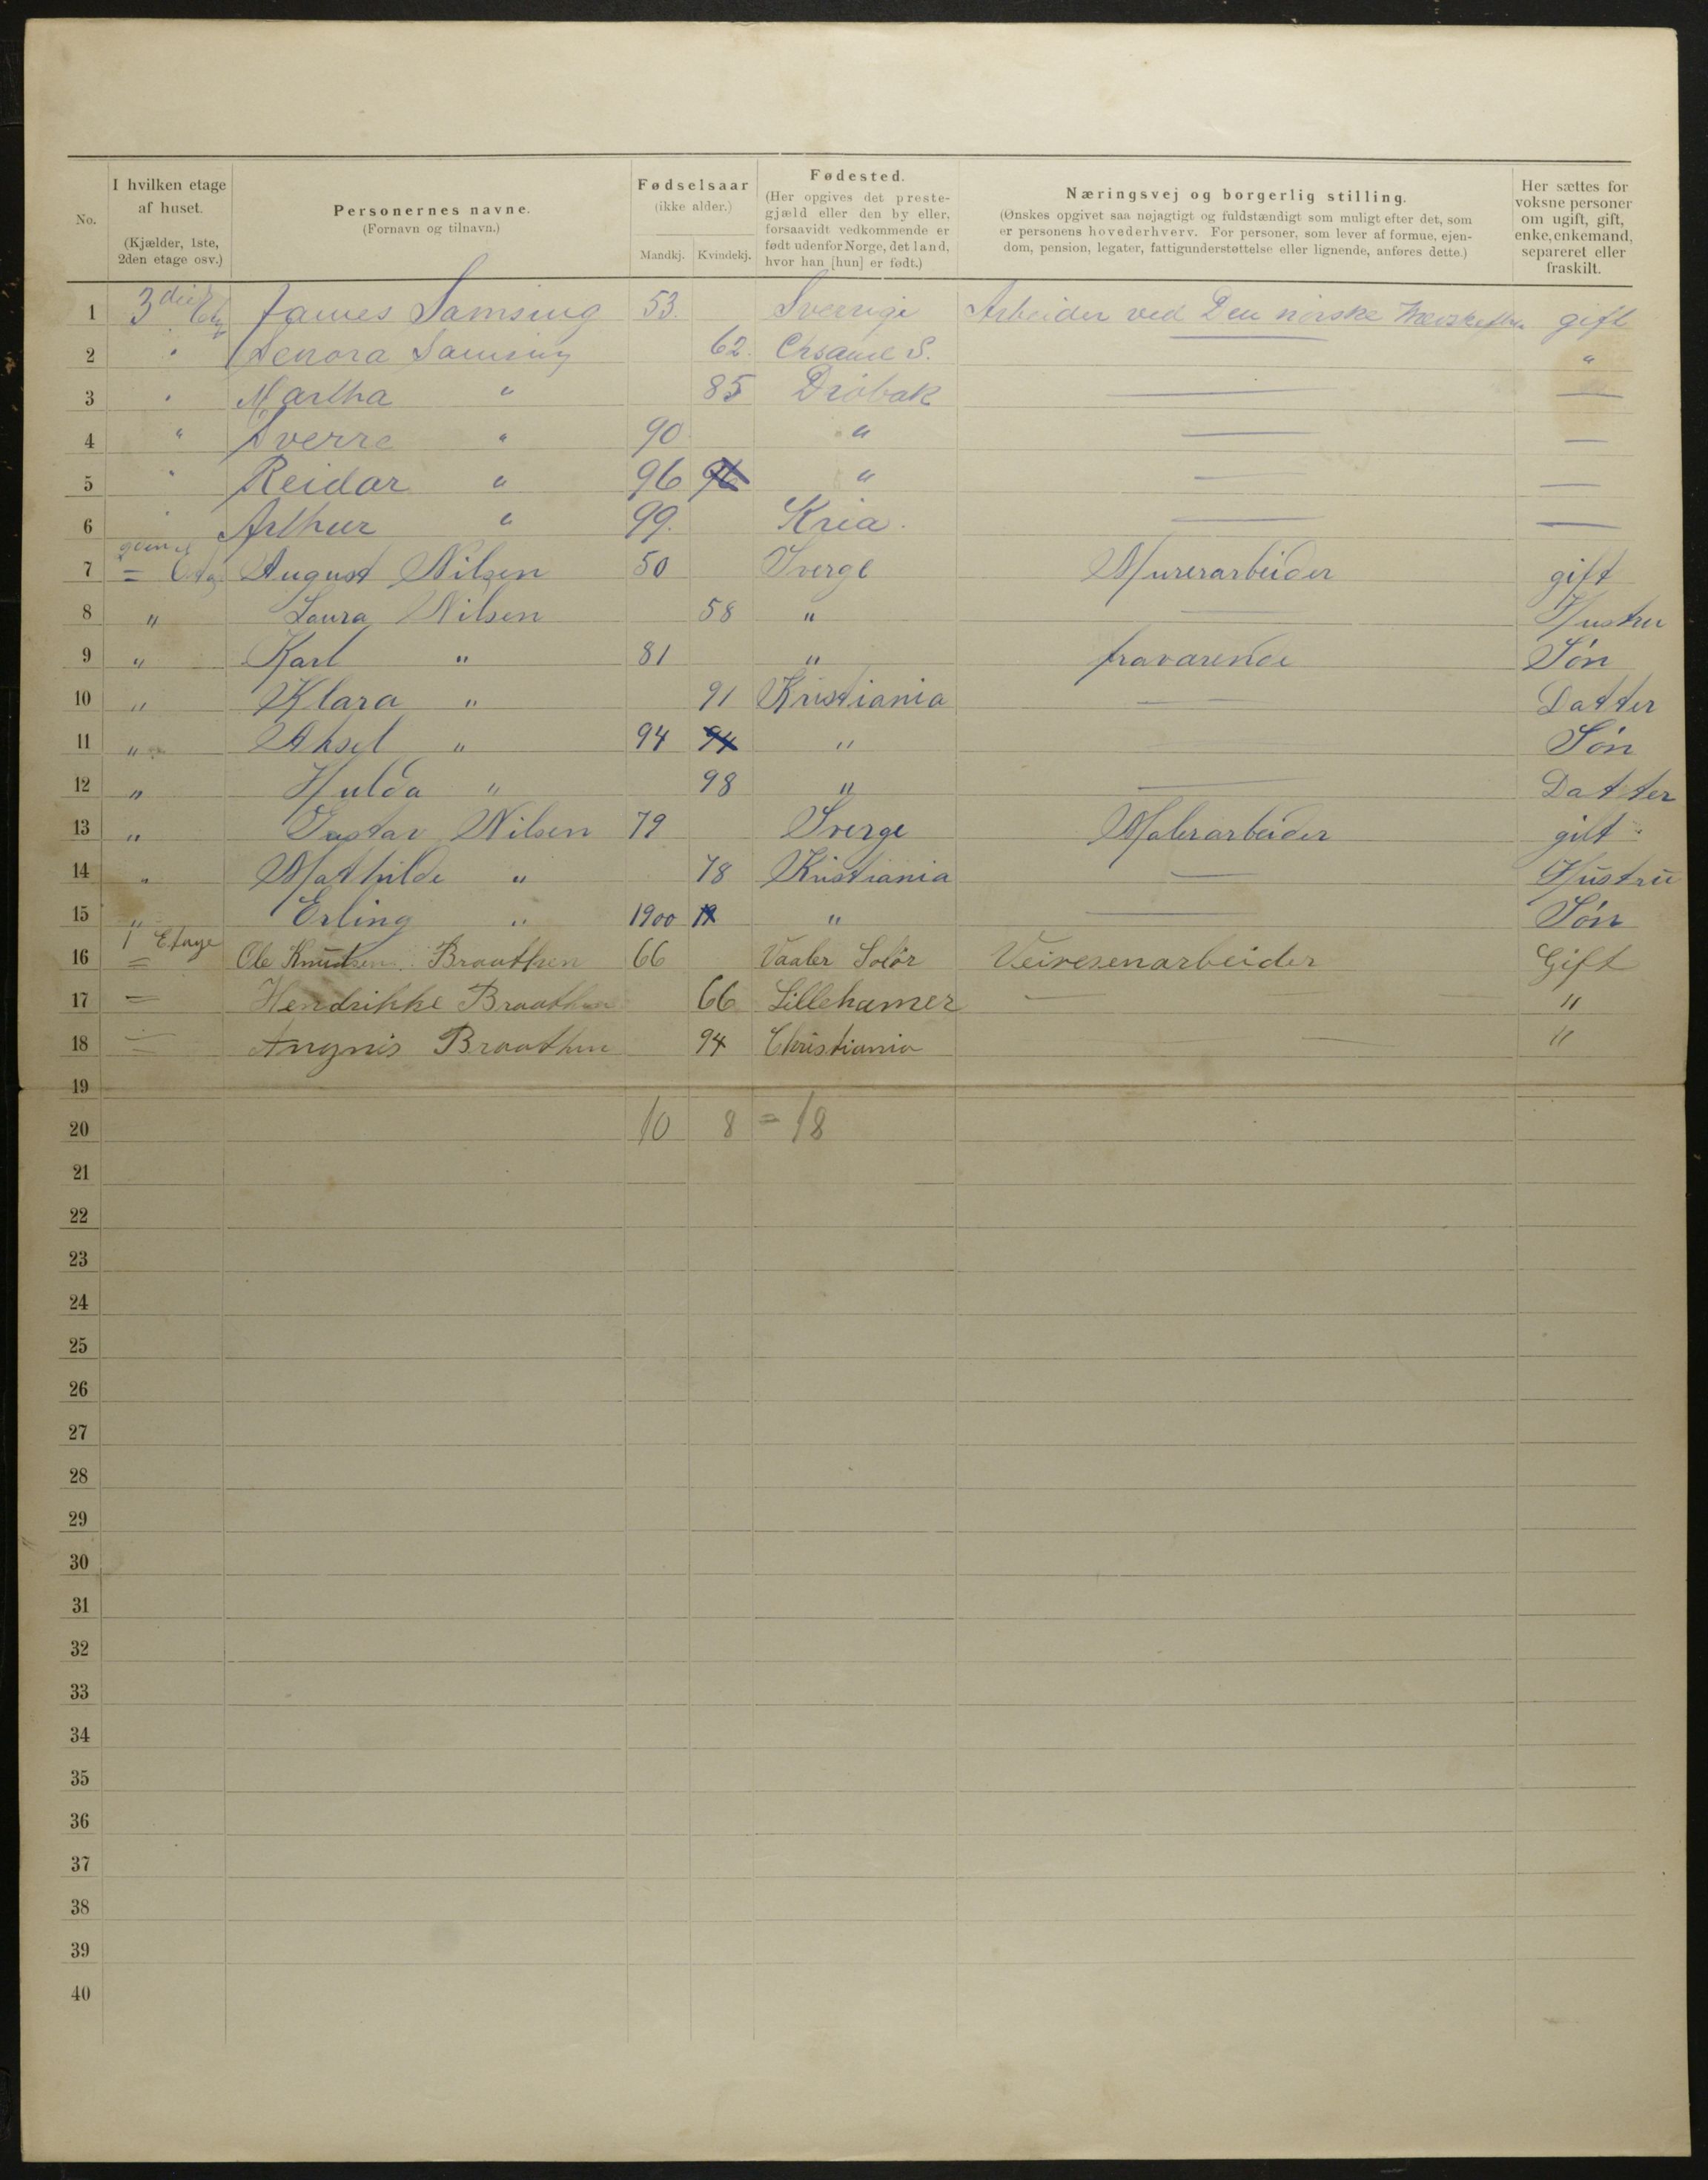 No. I hvilken etage af huset. (Kjælder, 1ste, 2den etage osv.) Personernes navne. (Fornavn og tilnavn.) Fødselsaar (ikke alder.) Mandkj. Kvindekj. Fødested. (Her opgives det prestegjæld eller den by eller, forsaavidt vedkommende er født udenfor Norge, det land, hvor han [hun] er født.) Næringsvej og borgerlig stilling. (Ønskes opgivet saa nøjagtigt og fuldstændigt som muligt efter det, som er personens hovederhverv. For personer, som lever af formue, ejendom, pension, legater, fattigunderstøttelse eller lignende, anføres dette.) Her sættes for voksne personer om ugift, gift, enke, enkemand, separeret eller fraskilt.
1 3die Etg James Samsing 53. Sverrige Arbeider ved Den norske gift
2 " Lenora Samsing 62. S. "
3 " Martha " 85 Drøbak — —
4 " Sverre " 90 " — —
5 " Reidar " 96 96 " — —
6 " Arthur " 99. Kria. — —
7 = Etg August Nilsen 50 Sverge Murerarbeider gift
8 " Laura Nilsen 58 " — Hustru
9 " Karl " 81 " fraværende Søn
10 " Klara " 91 Kristiania — Datter
11 " Aksel " 94 94 " — Søn
12 " Hulda " 98 " — Datter
13 " Gustav Nilsen 79 Sverge Malerarbeider gift
14 " Mathilde " 78 Kristiania — Hustru
15 " Erling " 1900 19 " — Søn
16 1 Etage = Ole Knudsen Braathen 66 Vaaler Solør Veivesenarbeider Gift
17 = Hendrikke Braathen 66 Lillehamer — — — "
18 = Angnis Braathen 94 Christiania — "
19
20 10 8 = 18
21
22
23
24
25
26
27
28
29
30
31
32
33
34
35
36
37
38
39
40